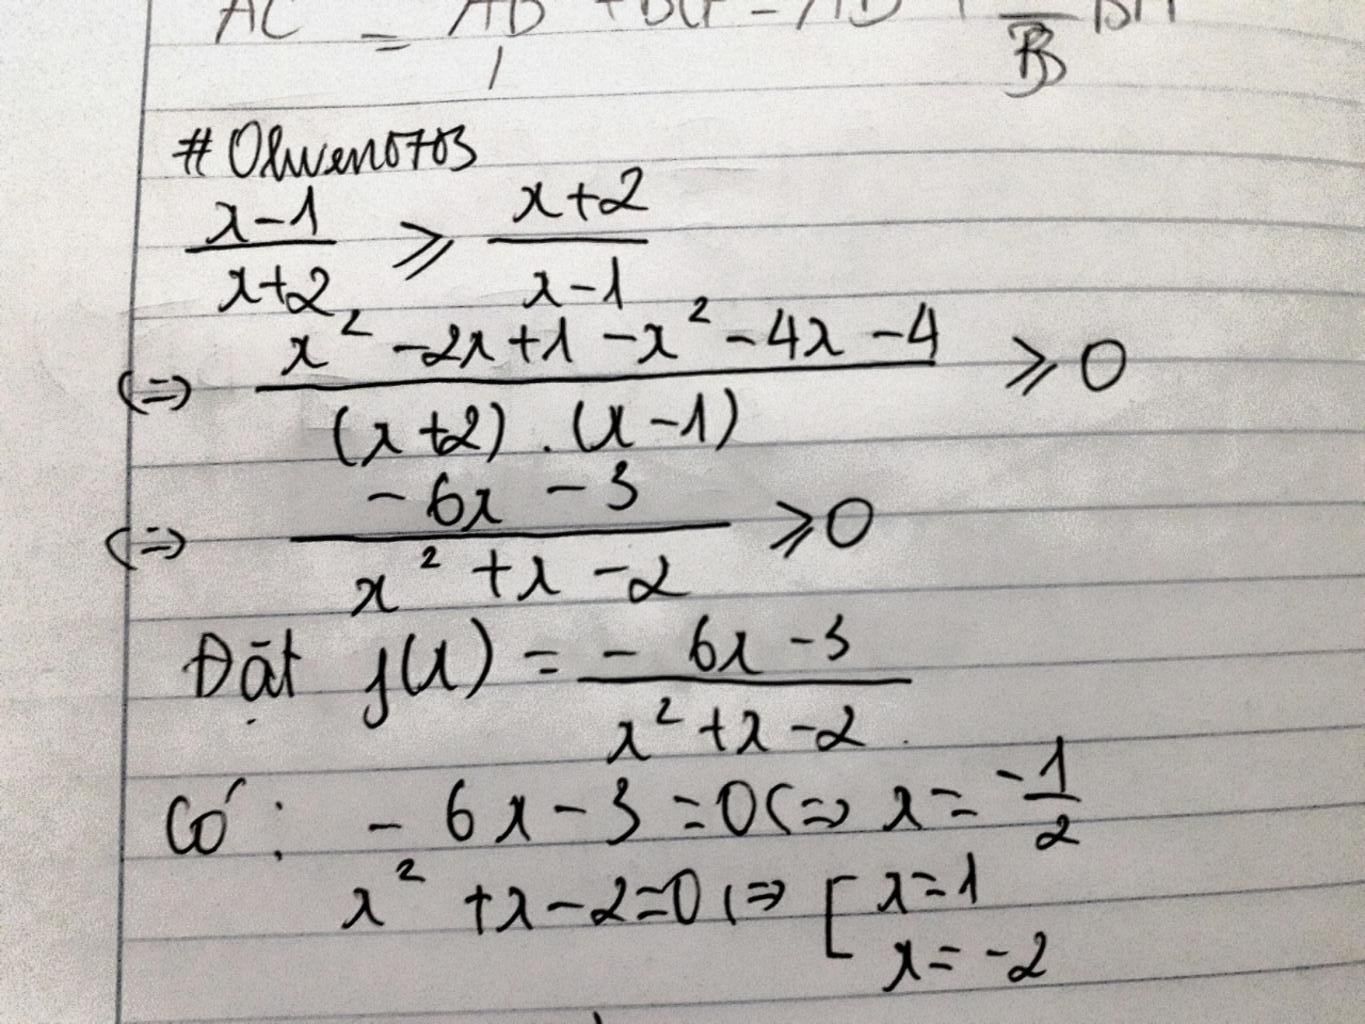 #Olwen0703
\frac{x-1}{x+2} ⩾ \frac{x+2}{x-1}
(=) \frac{x² -2x+1 -x² -4x -4}{(x+2) . (x-1)} ⩾ 0
(=) \frac{-6x -3}{x² +x -2} ⩾ 0
Đặt f(x) = \frac{-6x-3}{x²+x-2}
Có: -6x-3=0 (=> x= \frac{-1}{2}
x² +x-2=0 (=> [ x=1
x= -2